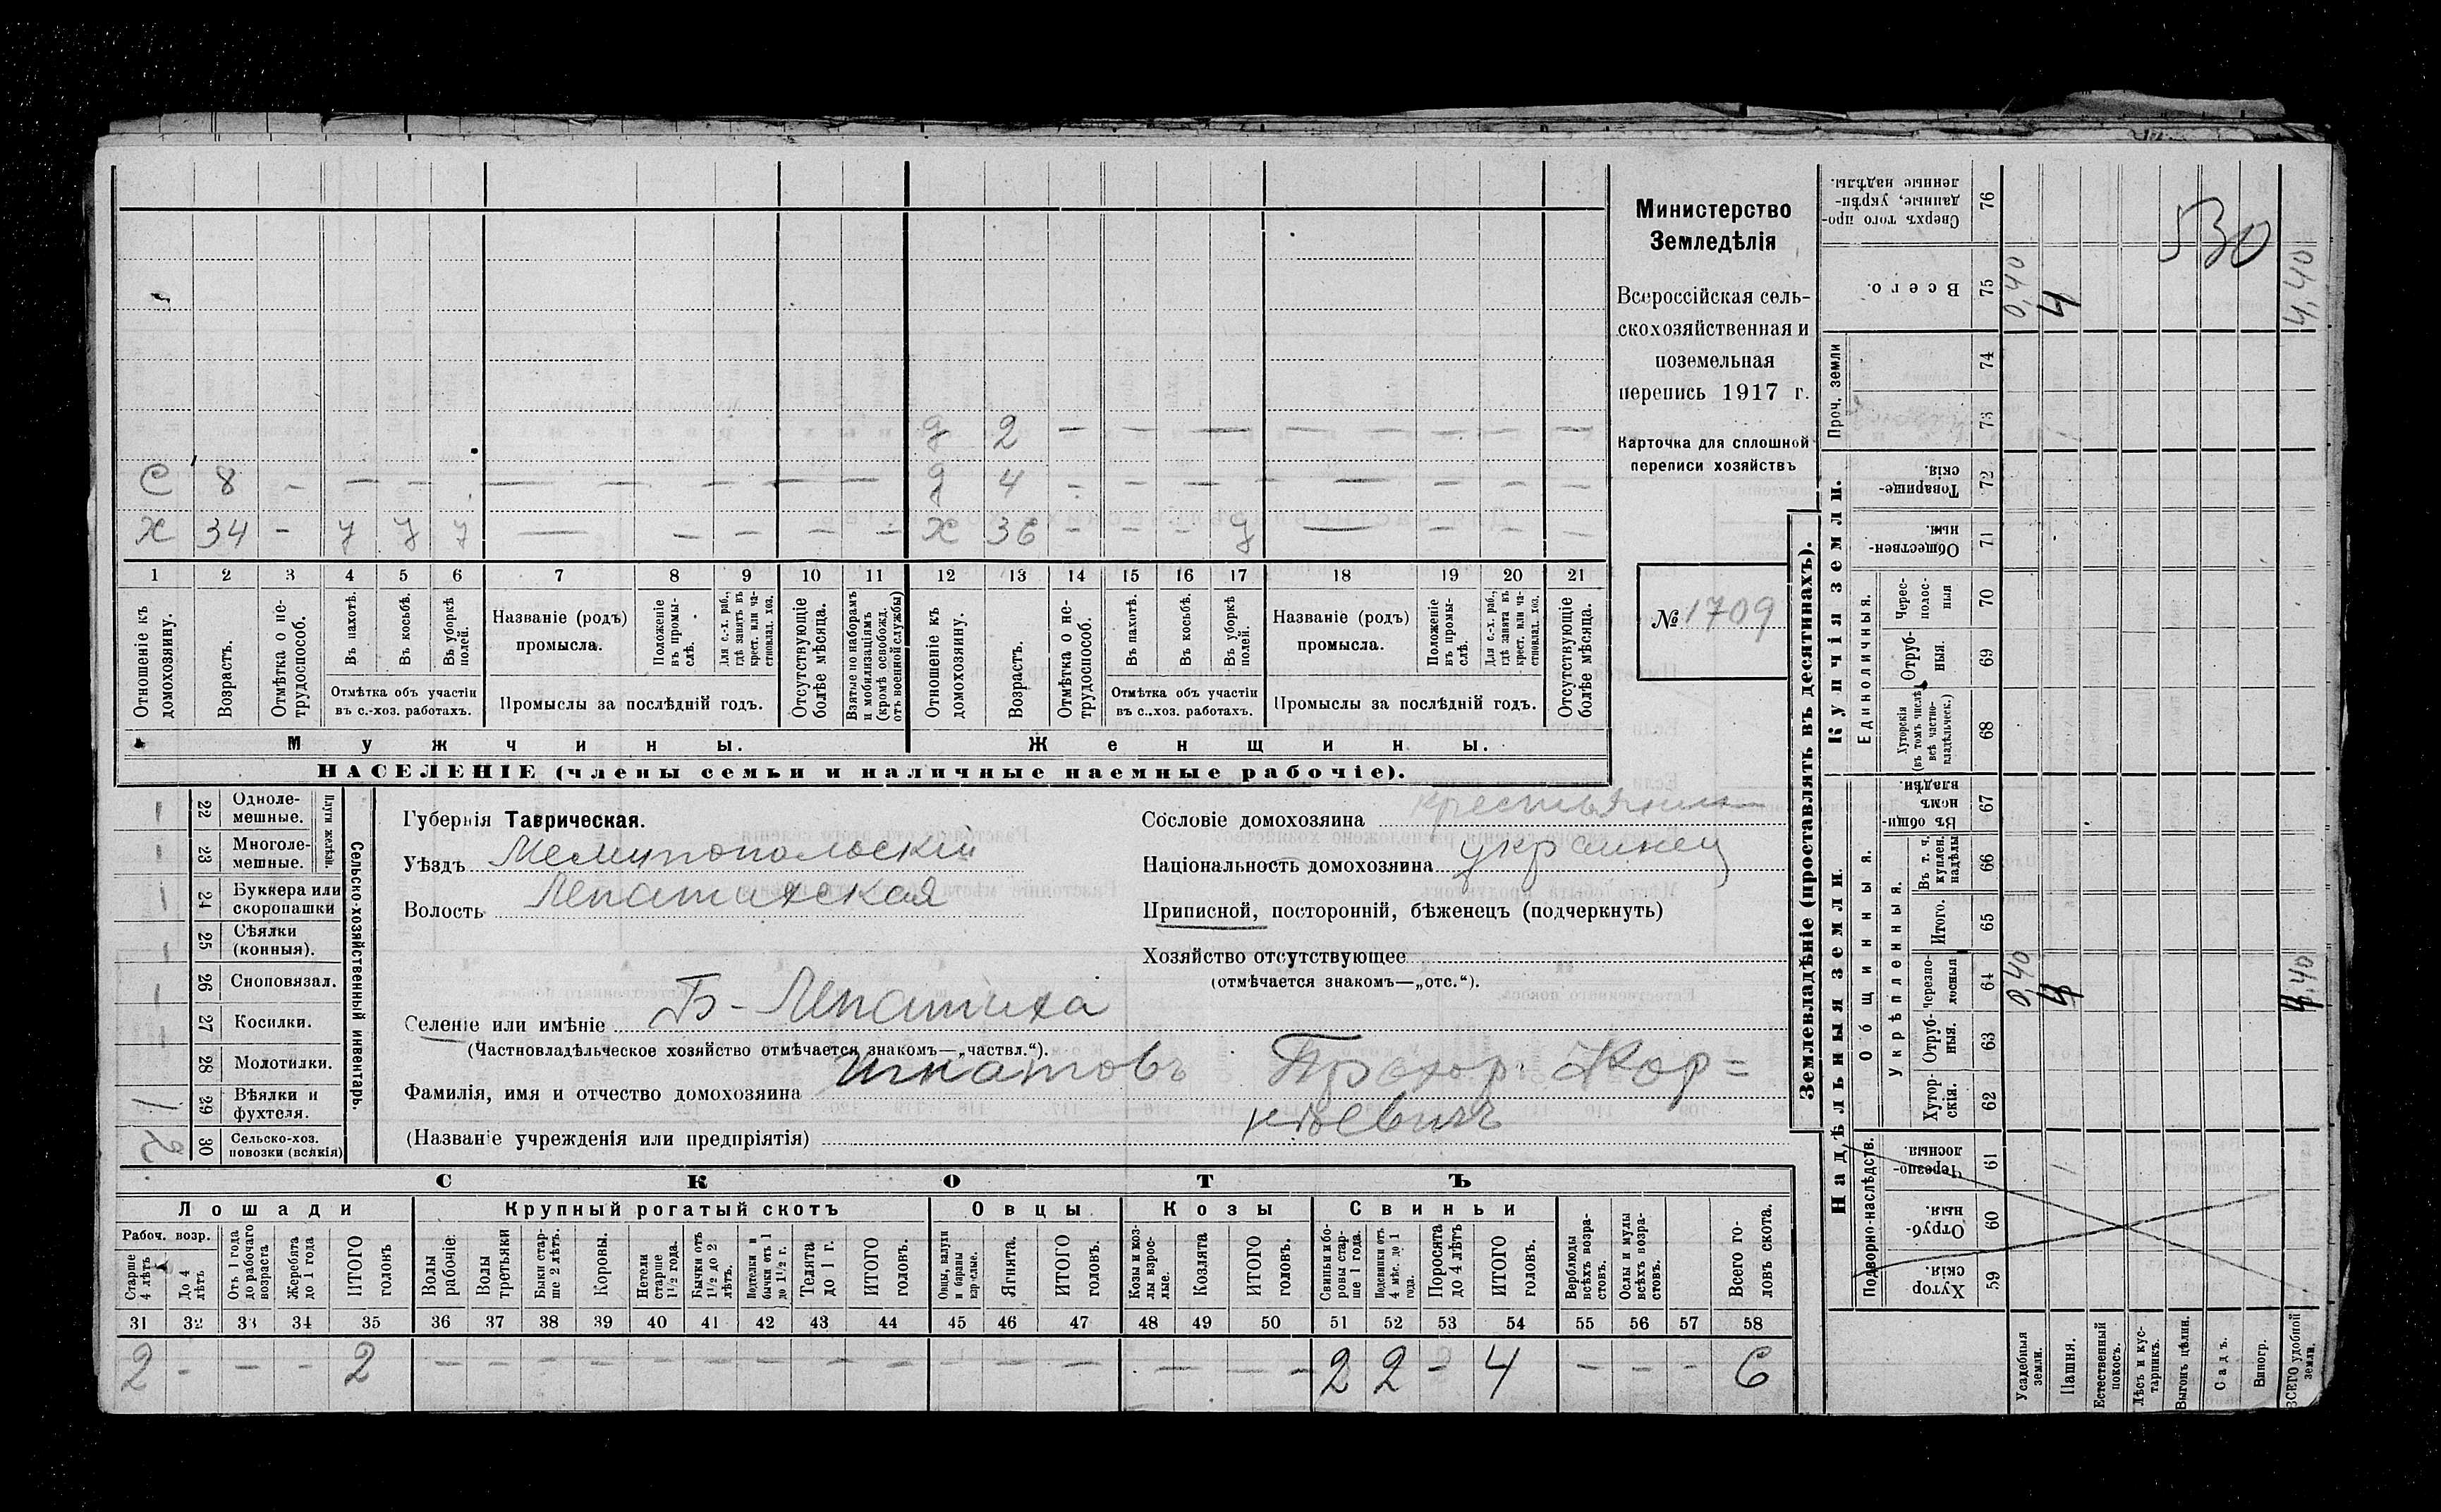 Министерство
Земледѣлія
Всероссійская сель-
скохозяйственная и
поземельная
перепись 1917 г.
Карточка для сплошной
переписи хозяйствъ
№ 1709
д 2 — — — — — — — —
С 8 — — — — — — — — — д 4 — — — — — — — —
Х 34 — У У У — — — — — Х 36 — — — У — — — —
1 2 3 4 5 6 7 8 9 10 11 12 13 14 15 16 17 18 19 20 21
Отношеніе къ домохозяину.
Возрастъ.
Отмѣтка о не-трудоспособ.
Въ пахотѣ.
Въ косьбѣ.
Въ уборкѣ полей.
Отмѣтка объ участіи
въ с.-хоз. работахъ.
Названіе (родъ)
промысла.
Положеніе въ промы-слѣ.
Для с.-х. раб., гдѣ занятъ въ крест. или ча-стновлад. хоз.
Промыслы за послѣдній годъ.
Отсутствующіе болѣе мѣсяца.
Взятые по наборамъ и мобилизаціямъ (кромѣ освобожд. отъ военной службы)
Отношеніе къ домохозяину.
Возрастъ.
Отмѣтка о не-трудоспособ.
Въ пахотѣ.
Въ косьбѣ.
Въ уборкѣ полей.
Отмѣтка объ участіи
въ с..хоз. работахъ.
Названіе (родъ)
промысла.
Положеніе въ промы-слѣ.
Для с.-х. раб., гдѣ занята въ крест. или ча-стновлад. хоз.
Промыслы за послѣдній годъ.
Отсутствующіе болѣе мѣсяца.
Мужчины. Женщины.
НАСЕЛЕНІЕ (члены семьи и наличные наемные рабочіе).
Сельско-хозяйственный инвентарь.
Плуги желѣзн.
— 22 Однолемешные.
— 23 Многолемешные.
— 24 Буккера или скоропашки
— 25 Сѣялки (конныя).
— 26 Сноповязал.
— 27 Косилки.
28 Молотилки.
1 29 Вѣялки и фухтеля.
2 30 Сельско-хоз. повозки (всякія)
Губернія Таврическая.
Уѣздъ Мелитопольскій
Волость Лепатихская
Селеніе или имѣніе Б-Лепатиха
(Частновладѣльческое хозяйство отмѣчается знакомъ—„частвл.“).
Фамилія, имя и отчество домохозяина Шкатовъ Прохор Кор=
нѣевичъ
(Названіе учрежденія или предпріятія)
Сословіе домохозяина крестьянин
Національность домохозяина украинец
Приписной, посторонній, бѣженецъ (подчеркнуть)
Хозяйство отсутствующее
(отмѣчается знакомъ—„отс.“).
СКОТЪ
Лошади Крупный рогатый скотъ Овцы Козы Свиньи
Рабоч. возр.
Старше 4 лѣтъ
До 4 лѣтъ
Отъ 1 года до рабочаго возраста
Жеребята до 1 года
ИТОГО головъ
Волы рабочіе
Волы третьяки
Быки стар-ше 2 лѣтъ.
Коровы.
Нетели старше 1½ года.
Бычки отъ 1½ до 2 лѣтъ.
Подтелки и бычки отъ 1 до 1½ г.
Телята до 1 г.
ИТОГО головъ.
Овцы, валухи и бараны взрослые.
Ягнята.
ИТОГО головъ.
Козы и коз-лы взрос-лые.
Козлята
ИТОГО головъ.
Свиньи и бо-ровы стар-ше 1 года.
Подсвинки отъ 4 мѣс. до 1 года.
Поросята до 4 лѣтъ
ИТОГО головъ.
Верблюды всѣхъ возра-стовъ.
Ослы и мулы всѣхъ возра-стовъ.
Всего го-ловъ скота.
31 32 33 34 35 36 37 38 39 40 41 42 43 44 45 46 47 48 49 50 51 52 53 54 55 56 57 58
2 - - - 2 — — — — — — — — — — — — — — — 2 2 - 4 — — - 6
Землевладѣніе (проставлять въ десятинахъ).
530
Сверхъ того про-данные, укрѣп-ленные надѣлы. 76
Всего. 75 0,40 4 4,40
Проч. земли 74
73
Купчія земли.
Товарище-скія. 72
Обществен-ныя. 71
Единоличныя.
Черес-полос-ныя 70
Отруб-ныя. 69
Хуторскія (въ томъ числѣ всѣ частно-владѣльческ.) 68
Надѣльныя земли.
Общинныя.
Въ общи-номъ владѣн. 67
Укрѣпленныя.
Въ т. ч. куплен. надѣлы 66
Итого. 65
Черезпо-лосныя 64 0,40 4 4,40
Отруб-ныя. 63
Хутор-скія. 62
Подворно-наслѣдств.
Черезпо-лосныя 61
Отруб-ныя. 60
Хутор-скія. 59
Усадебныя земли.
Пашня.
Естественный покосъ.
Лѣсъ и кус-тарникъ.
Выгонъ цѣлин.
Садъ.
Виногр.
ВСЕГО удобной земли.